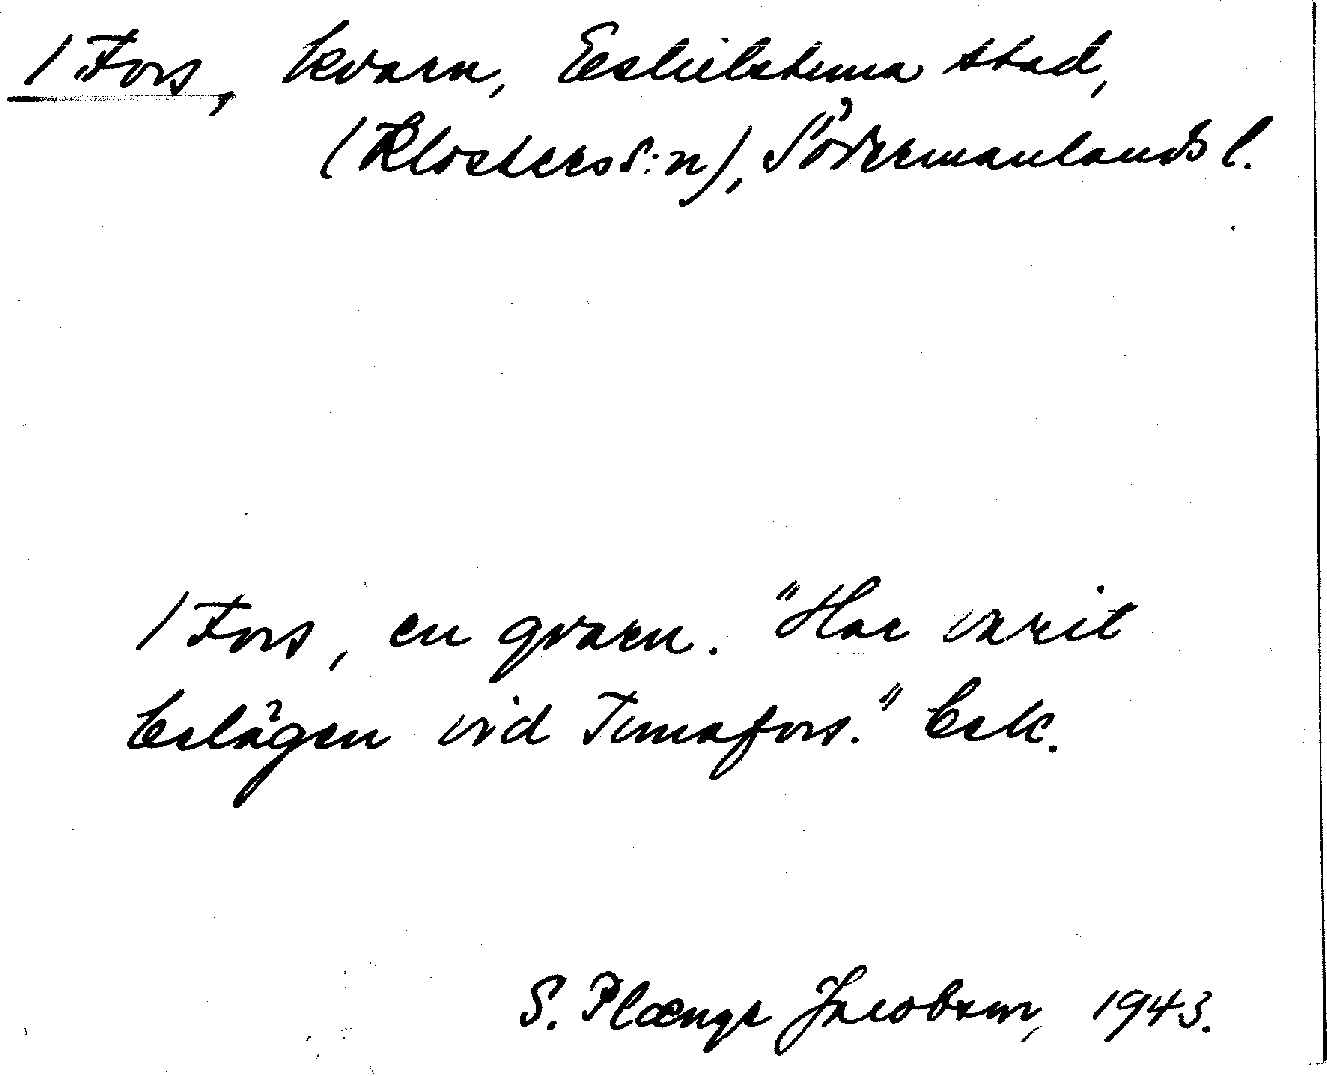 / Fors, kvarn, Eskilstuna stad,
(Klosters s:n), Södermanlands l.
/ Fors, en qvarn. "Har varit
belägen vid Tunafors." bek.
S. Plænge Jacobson, 1943.